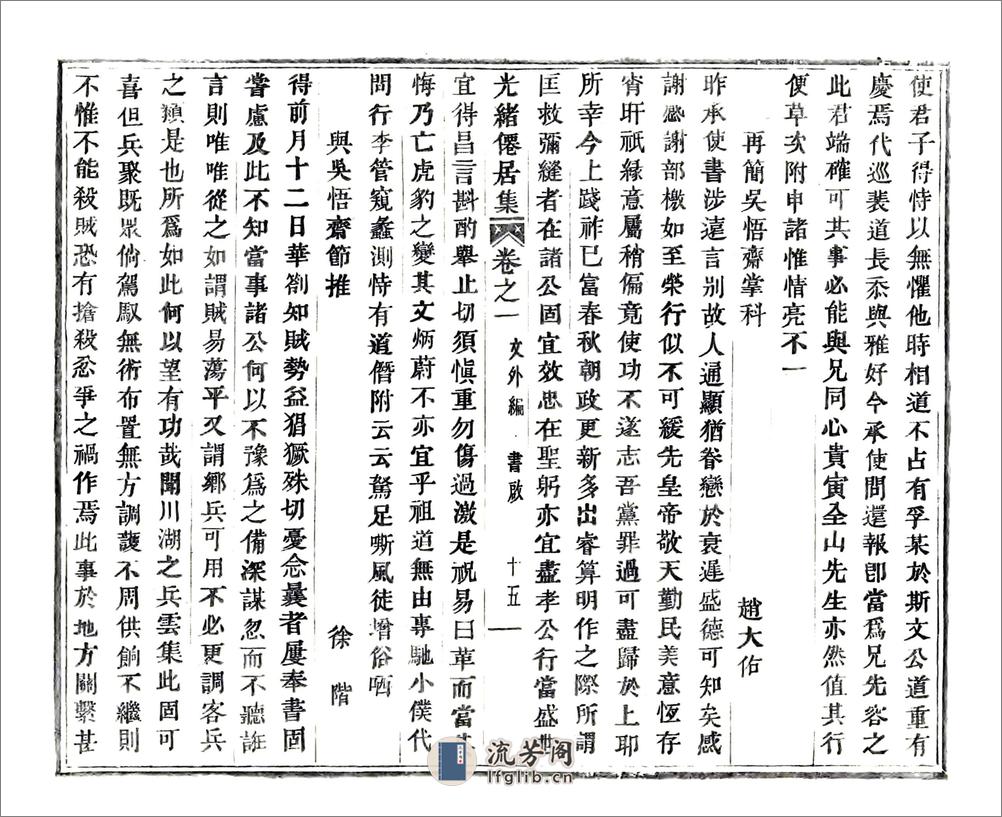 使君子得恃以無懼他時相道不占有孚某於斯文公道重有
慶焉代巡裴道長忝與雅好今承使問還報卽當爲兄先容之
此君端確可其事必能與兄同心貴寅全山先生亦然值其行
便草次附申諸惟情亮不一
再簡吳悟齋掌科
趙大佑
昨承使書涉遠言别故人通顯猶眷戀於衰遲盛德可知矣感
謝感謝部檄如至榮行似不可緩先皇帝敬天勤民美意恆存
宵旰祇緣意屬稍偏竟使功不遂志吾黨罪過可盡歸於上耶
所幸今上踐祚巳富春秋朝政更新多出睿算明作之際所謂
匡救彌縫者在諸公固宜效忠在聖躬亦宜盡孝公行當盛世
光緒僊居集
卷之一
文外編
書啟
十五
宜得昌言斟酌舉止切須愼重勿傷過激是祝易曰革而當其
悔乃亡虎豹之變其文炳蔚不亦宜乎祖道無由專馳小僕代
問行李管窺蠡測恃有道僭附云云駑足嘶風徒增俗哂
與吳悟齋節推
徐階
得前月十二日華劄知賊勢益猖獗殊切憂念曩者屢奉書固
嘗慮及此不知當事諸公何以不豫爲之備深謀忽而不聽誑
言則唯唯從之如謂賊易蕩平又謂鄉兵可用不必更調客兵
之類是也所爲如此何以望有功哉聞川湖之兵雲集此固可
喜但兵聚旣眾倘駕馭無術布置無方調護不周供餉不繼則
不惟不能殺賊恐有搶殺忿爭之禍作焉此事於地方關繫甚
流芳阁
lfglib.cn